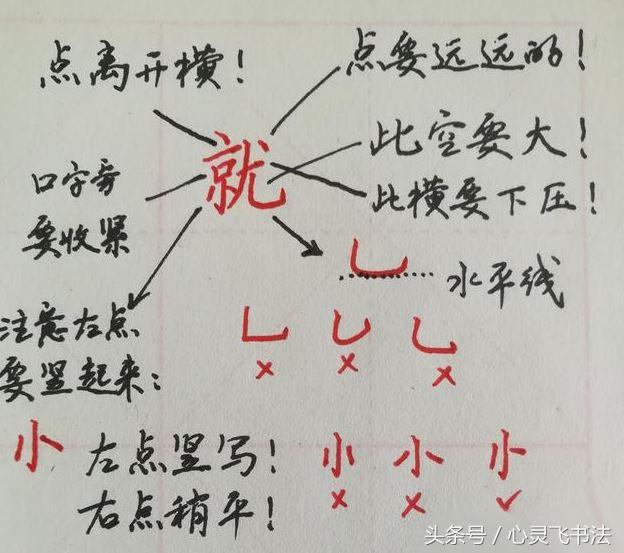 点离开横！
点要远远的！
就
此空要大！
此横要下压！
口字旁
要收紧
水平线
注意左点
要竖起来：
小 左点竖写！
右点稍平！
小 小 小
× × ×
× × ✓
头条号 / 心灵飞书法